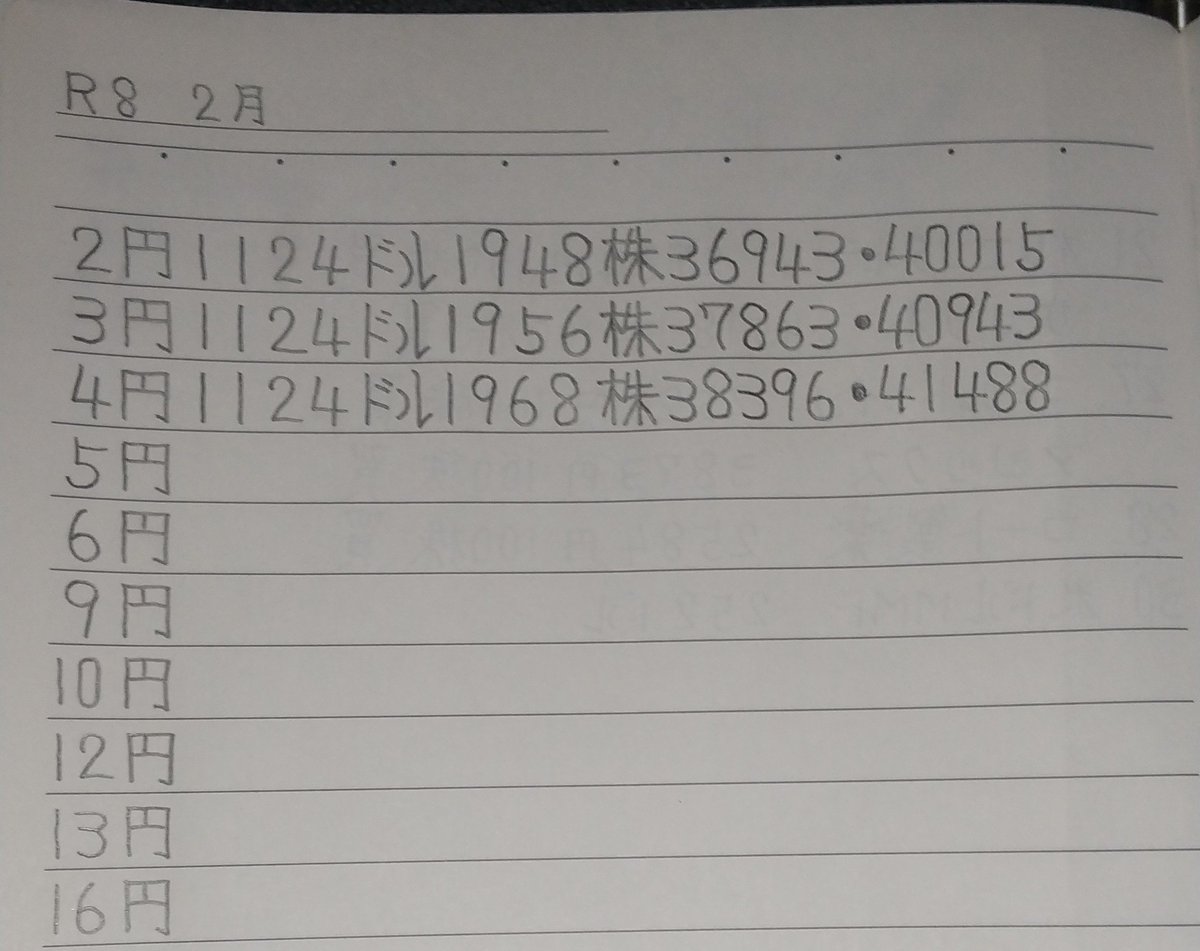 R8 2月
2円1124ドル1948株36943・40015
3円1124ドル1956株37863・40943
4円1124ドル1968株38396・41488
5円
6円
9円
10円
12円
13円
16円